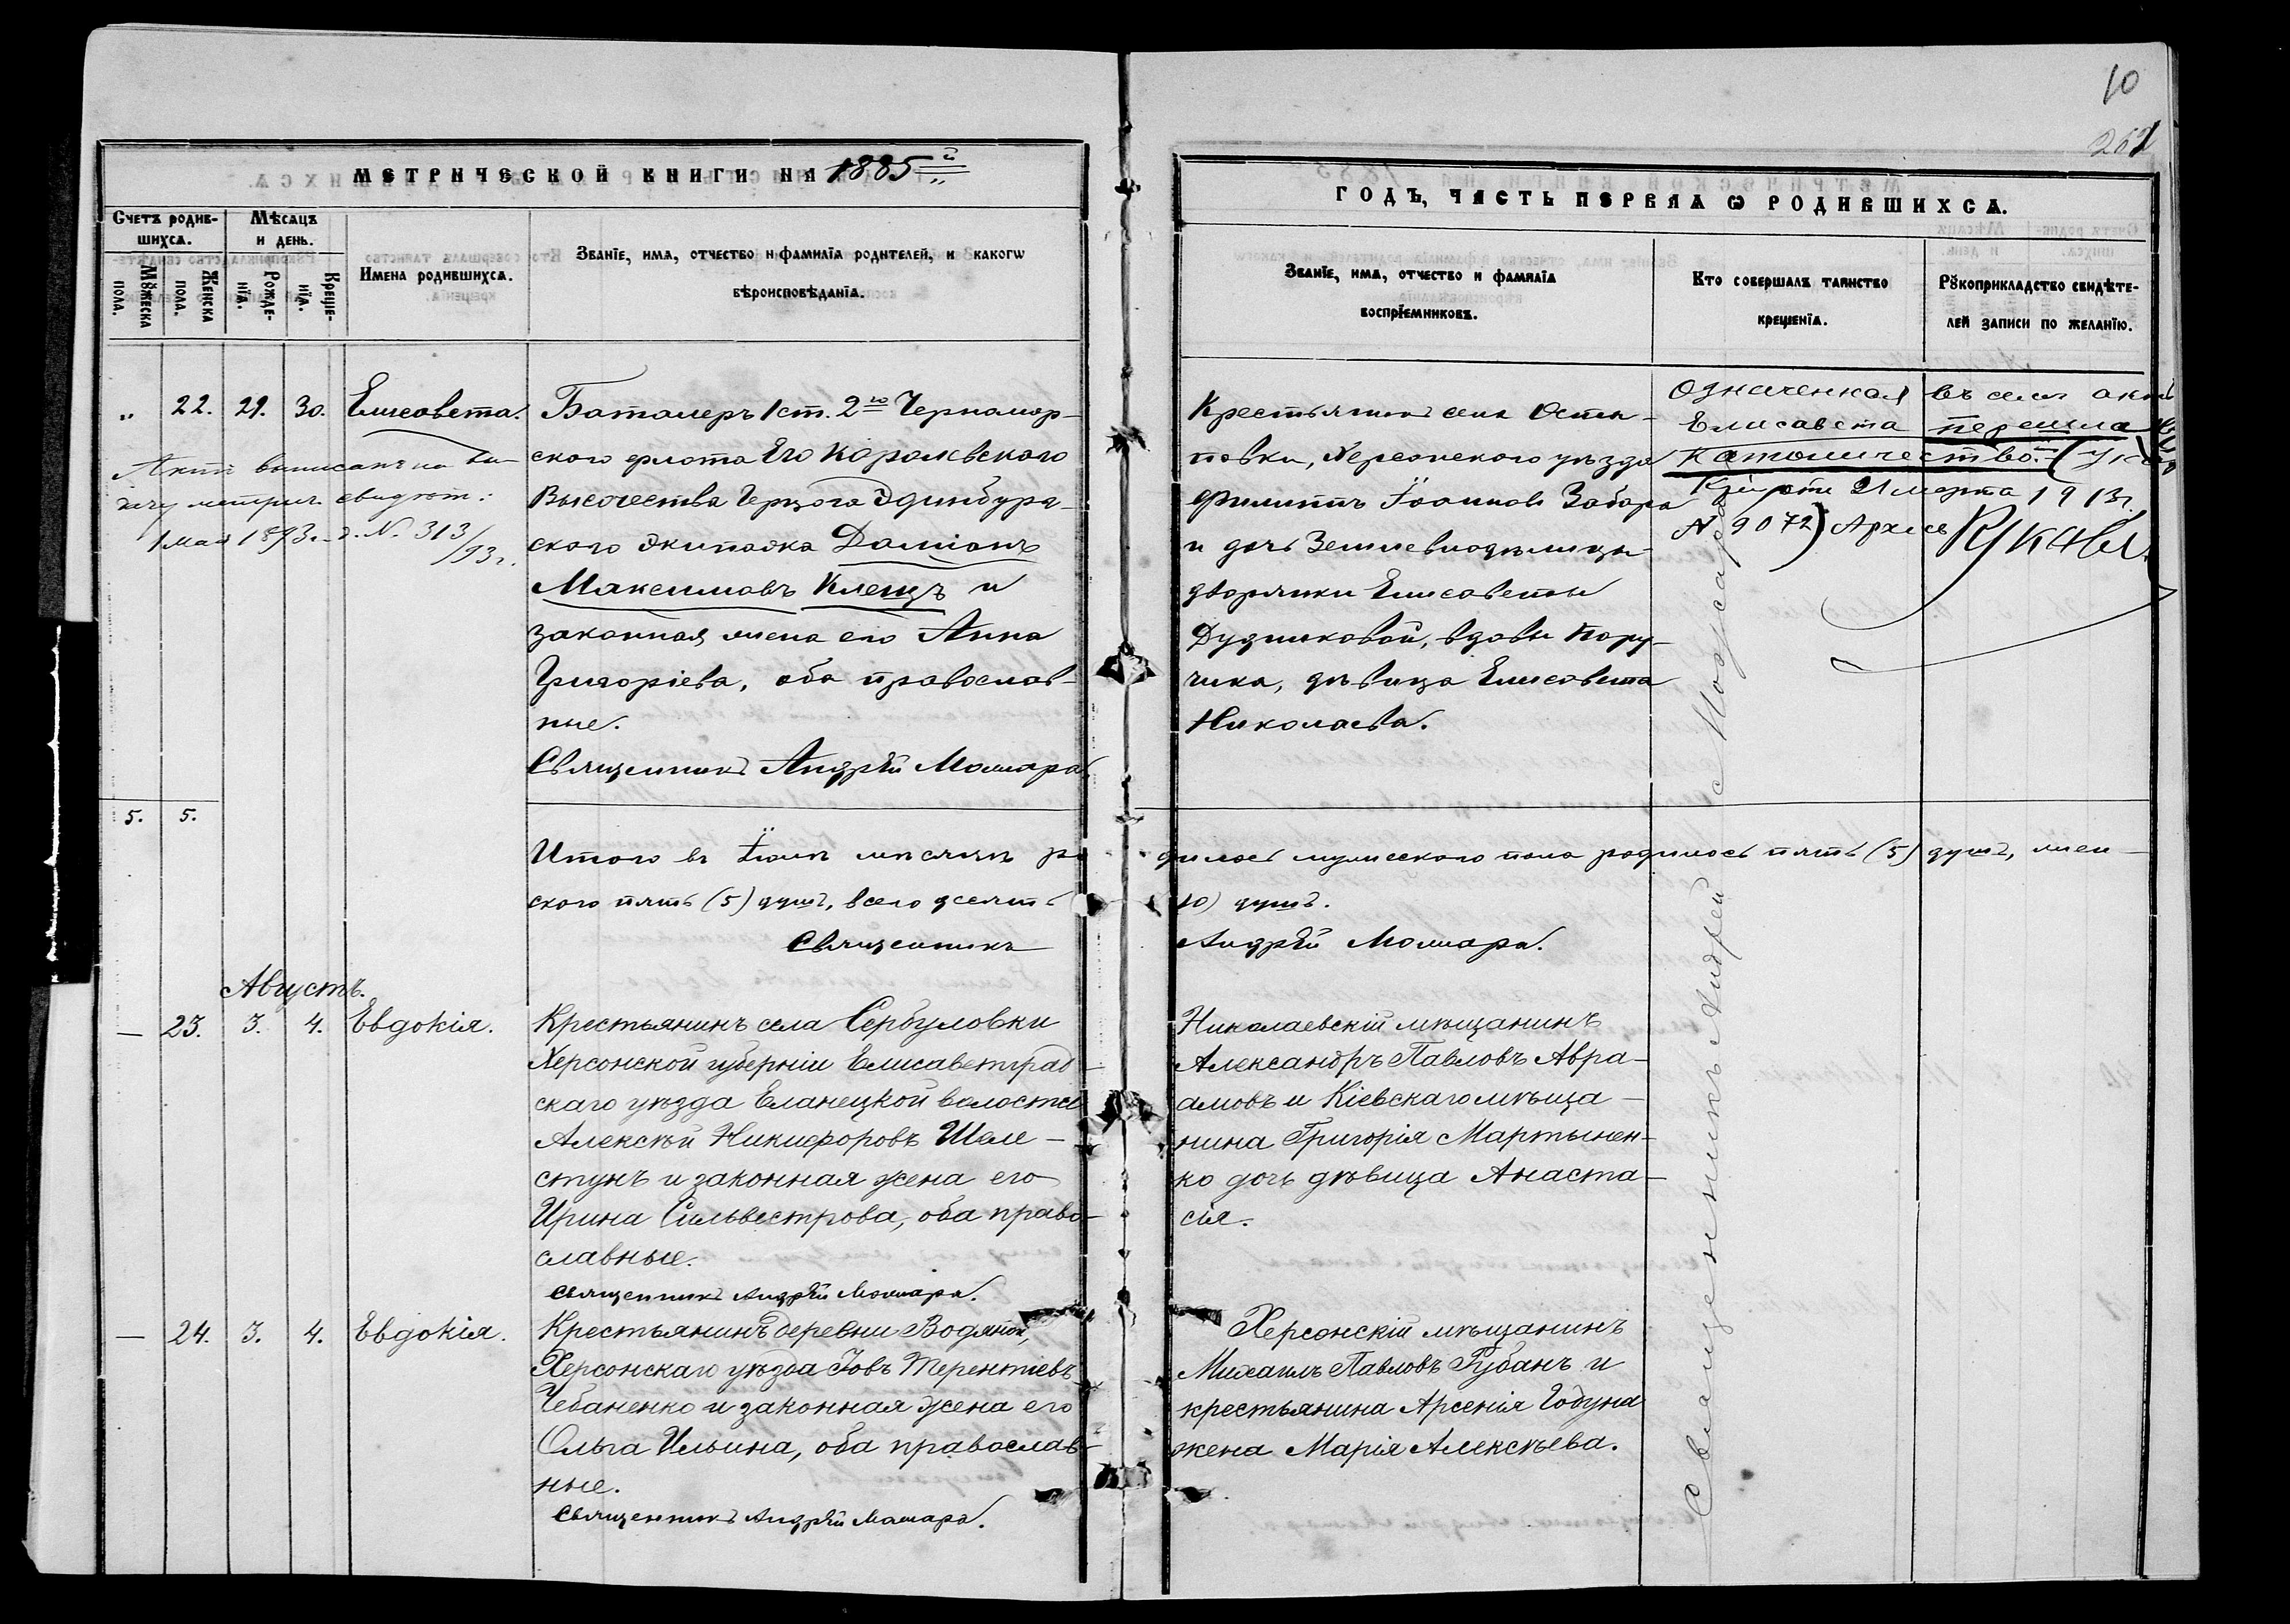 10
262
МЕТРИЧЕСКОЙ КНИГИ НА 1885й
ГОДЪ, ЧАСТЬ ПЕРВАЯ Ѡ РОДИВШИХСѦ.
Счетъ родив-
шихсѧ.
Мѣсѧцъ
и день.
Мꙋжеска
пола.
Женска
пола.
Рожде-
нїѧ.
Креще-
нїѧ.
Имена родившихсѧ.
Званїе, имѧ, отчество и фамилїѧ родителей, и какогѡ
вѣроисповѣданїѧ.
Званїе, имѧ, отчество и фамилїѧ
воспрїемниковъ.
Кто совершалъ таинство
крещенїѧ.
Рꙋкоприкладство свидѣте-
лей записи по желанїю.
„ 22. 29. 30. Елисавета.
Баталеръ 1 ст. 2го Черномор-
скаго флота Его Королевского
Высочества Герцога Эдинбург-
ского экипажа Даміанъ
Максимовъ Клещъ и
законная жена его Анна
Григоріева, оба православ-
ные.
Священникъ Андрей Мошара
Актъ выписанъ на вы-
дачу метрич. свидѣт.:
1 мая 1893 г. № 313/93 г.
Крестьянинъ села
повки, Херсонского уѣзда
Филиппъ Іоанновъ Забара
и дочь Землевладѣлицы
дворянки Елисаветы
Дудниковой, вдовы Пору-
чика, дѣвица Елисавета
Николаева.
Означенная въ семъ актѣ
Елисавета перешла въ
католичество. (Указ
21 марта 1913 г.
№ 9072)
5. 5.
Итого въ Іюлѣ мѣсяцѣ ро дилось мужескаго пола родилось пять (5) душъ, жен-
ского пять (5) душъ, всего десять (10) душъ.
Священникъ Андрей Мошара.
Августъ.
— 23. 3. 4. Евдокія.
Крестьянинъ села Сербуловки
Херсонской губерніи Елисаветград-
скаго уѣзда Еланецкой волости
Алексѣй Никифоровъ Шеле-
стунъ и законная жена его
Ирина Сильвестрова, оба право-
славные.
Священникъ Андрей Мошара.
Николаевскій мѣщанинъ
Александръ Павловъ Авра-
амовъ и Кіевскаго мѣща-
нина Григорія Мартынен-
ко дочь дѣвица Анаста-
сія.
— 24. 3. 4. Евдокія.
Крестьянинъ деревни Водяной,
Херсонскаго уѣзда Іовъ Терентіевъ
Чебаненко и законная жена его
Ольга Ильина, оба православ-
ные.
Священникъ Андрей Мошара.
Херсонскій мѣщанинъ
Михаилъ Павловъ Рубанъ и
крестьянина Арсенія Годуна
жена Марія Алексѣева.
Священникъ Андрей Мошара